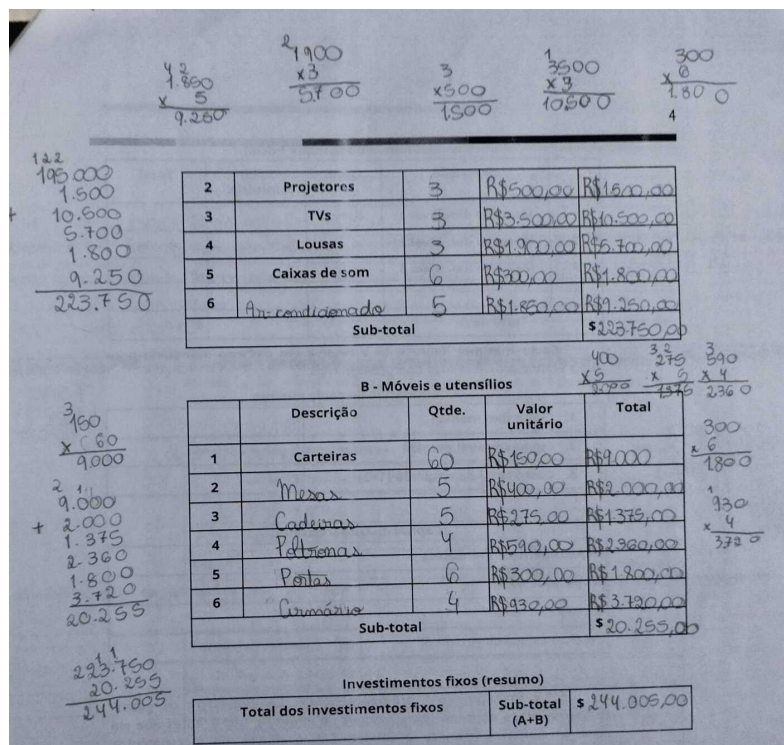 4 2
1.850
x 5
9.250
2
1900
x3
5.700
3
x500
1500
1
3500
x3
10500
300
x 6
1.800
4
1 2 2
195.000
1.500
+ 10.500
5.700
1.800
9.250
223.750
2 Projetores 3 R$500,00 R$1500,00
3 TVs 3 R$3.500,00 R$10.500,00
4 Lousas 3 R$1.900,00 R$5.700,00
5 Caixas de som 6 R$300,00 R$1.800,00
6 Ar-condicionado 5 R$1.850,00 R$9.250,00
Sub-total $223.750,00
400
x 5
2.000
3 2
275
x 5
1375
3
590
x 4
2360
B - Móveis e utensílios
Descrição Qtde. Valor unitário Total
1 Carteiras 60 R$150,00 R$9.000
2 Mesas 5 R$400,00 R$2.000,00
3 Cadeiras 5 R$275,00 R$1375,00
4 Poltronas 4 R$590,00 R$2360,00
5 Portas 6 R$300,00 R$1.800,00
6 Armário 4 R$930,00 R$3.720,00
Sub-total $20.255,00
3
150
x 60
9.000
2 1
9.000
+ 2.000
1.375
2.360
1.800
3.720
20.255
300
x 6
1800
1
930
x 4
3720
1 1
223.750
20.255
244.005
Investimentos fixos (resumo)
Total dos investimentos fixos Sub-total (A+B) $244.005,00